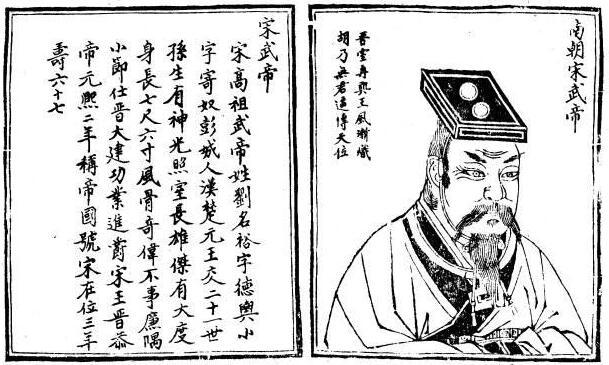 南朝宋武帝
晋室再王風漸熾
胡乃無君傳天位
宋武帝
宋高祖武帝姓劉名裕字德輿小
字寄奴彭城人漢楚元王交二十一世
孫生有神光照室長雄傑有大度
身長七尺六寸風骨奇偉不事廉隅
小節仕晋大建功業進爵宋王晋恭
帝元熙二年稱帝國號宋在位三年
壽六十七